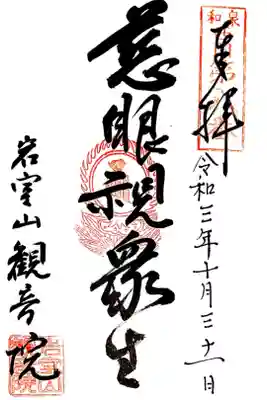 奉拝
令和三年十月三十一日
慈眼視衆生
岩室山観音院